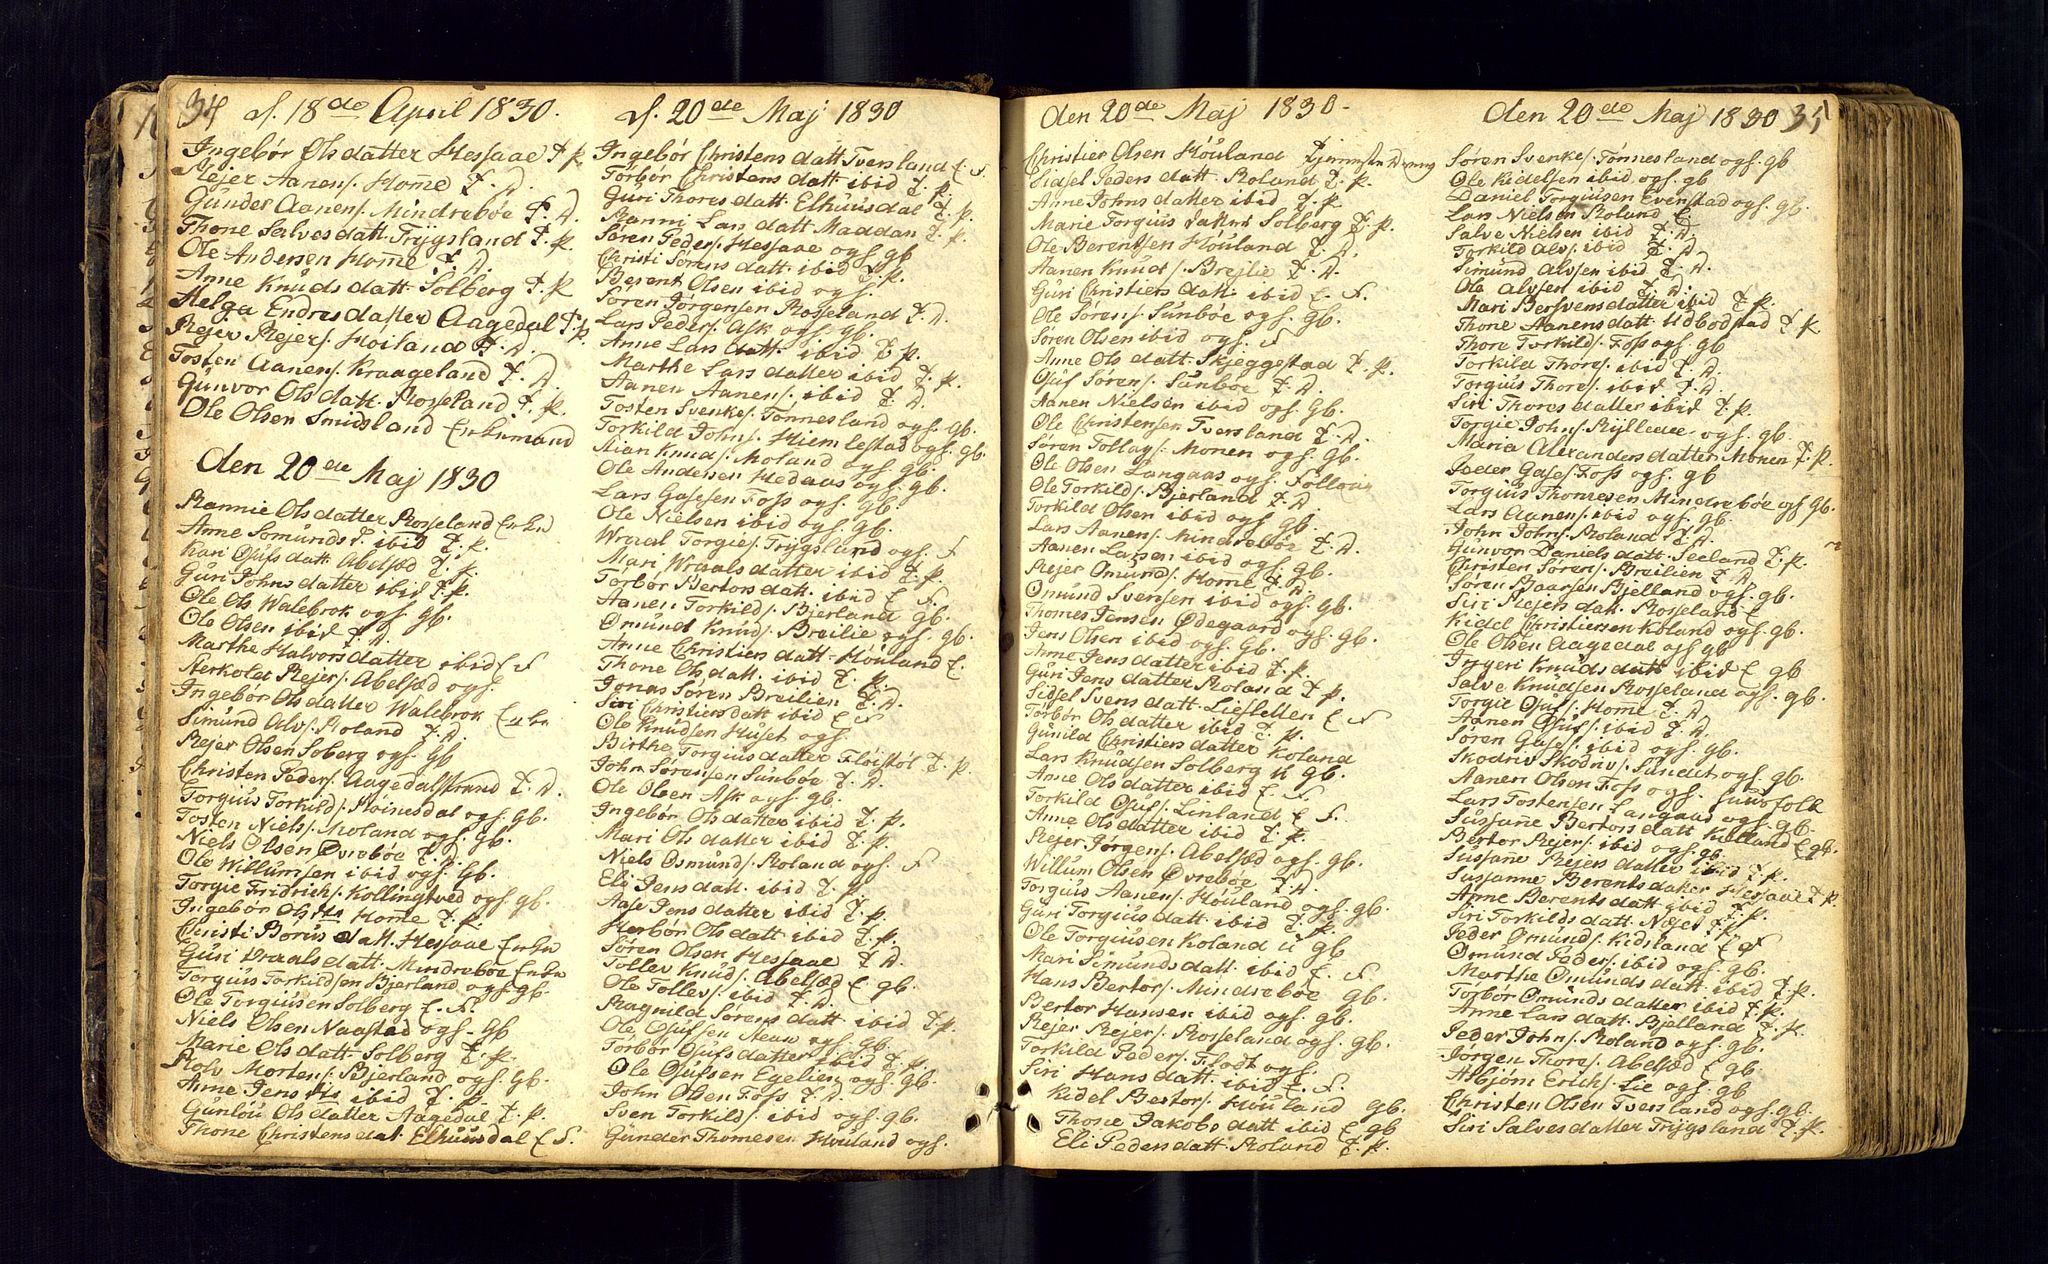 34 d. 18de April 1830.
Ingebór Olsdatter Hessaae T. P.
Rejer Aanens. Home T. D.
Gunder Aanens. Mindrebøe T. D.
Thone Salvesdatt. Trÿgsland T. P.
Ole Andersen Home T. D.
Anne Knudsdatt. Solberg T. P.
Helga Endresdatter Aagedal T. P.
Rejer Rejers. Hóiland T. D.
Tosten Aanens. Kraageland T. D.
Gúnvor Olsdatt. Rosseland T. P.
Ole Olsen Smidsland Enkemand
Den 20de Maj 1830
Rannie Olsdatter Rosseland Enken
Anne Somunds d. ibid T. P.
Kari Ojúfs datt. Abelsæd T. P.
Gúri Johnsdatter ibid T. P.
Ole Ols. Walebrok ogs. gb.
Ole Olsen ibid T. D.
Marthe Halvorsdatter ibid E F
Aerkold Rejers. Abelsæd ogs.
Ingebór Olsdatter Walebrok Enken
Simúnd Alvs. Roland T. D.
Rejer Olsen Soberg ogs. gb
Christen Peders. Aagedalstrand T. D.
Torgiús Torkilds. Høinesdal ogs. gb.
Tosten Niels. Roland ogs. gb.
Niels Olsen Øvrebøe T. D.
Ole Willumsen ibid ogs. gb.
Torgie Fridrichs. Kollingtved ogs. gb.
Ingebór Ols dtr Home T. P.
Christi Borús datt. Hessaae Enken
Gúri Wraalsdatt. Mindrebøe Enken
Torgiús Torkildsen Bjerland ogs. gb.
Ole Torgiúsen Solberg E. F.
Niels Olsen Naastad ogs. gb
Marie Olsdatt. Solberg T. P.
Rolv Mortens. Bjerland ogs. gb.
Anne Jens dtr ibid T. P.
Gúnloú Olsdatter Aagedal T. P.
Thone Christensdat. Elhúusdal E F.
d. 20de Maj 1830
Ingebór Christens datt Tversland E. F.
Torbór Christens datt ibid T. P.
Gúri Thores datt. Elhúusdal T. P.
Ranni Lars datt Maadan T. P.
Sóren Peders. Hessaae ogs gb
Christi Sórens datt. ibid T. P.
Berent Olsen ibid ogs.
Sóren Jórgensen Rosseland T. D.
Lars Peders. Ask ogs. gb.
Anne Lars datt. ibid T. P.
Marthe Lars datter ibid T. P.
Aanen Aanens. ibid T. D.
Tosten Svenkes. Tónnesland ogs. gb.
Torkild Johns. Hiemlestad ogs. gb.
Stian Knuds. Roland ogs. gb.
Ole Andersen Hedaas ogs gb.
Lars Gasesen Foss ogs. gb.
Ole Nielsen ibid ogs. gb.
Wraal Torgies. Trÿgsland ogs. F
Mari Wraalsdatter ibid T. P.
Torbór Bertorsdatt. ibid E F.
Aanen Torkilds. Bjerland gb.
Omúnd Knúds. Breilie ogs. gb.
Anne Christiers datt. Hóuland E.
Thone Olsdatt. ibid T. P.
Jonas Sóren Breilien T. D.
Siri Christiersdatt ibid E F
Ole Knúdsen Húset ogs.
Birthe Torgiusdatter Flóistól T. P.
John Sórensen Súnbøe T. D.
Ole Olsen Ask ogs. gb.
Ingebór Olsdatter ibid T. P.
Mari Olsdatter ibid T. P.
Niels Osmúnds. Roland ogs F
Eli Jensdatt. ibid T. P.
Aase Jensdatter ibid T. P.
Herbór Olsdatt ibid T. P.
Sóren Olsen Hessaae T. D.
Tollev Knúds. Abelsæd E gb.
Ole Tollevs. ibid T. D.
Ragnild Sórens datt ibid T. P.
Ole Ojúfsen Steen ogs. gb.
Torbór Ojúfsdatter ibid T. P.
Ole Ojúfsen Egelien ogs. gb.
John Olsen Foss T. D.
Sven Torkilds. ibid ogs. gb.
Gúnder Thomesen Hóuland ogs.
Den 20de Maj 1830.
Christier Olsen Hóuland
Sidsel Peders datt. Roland T. P.
Anne Johnsdatter ibid T. P.
Marie Torgius datter Solberg T. P.
Ole Berentsen Hóuland T. D.
Aanen Knúds. Brejlie T. D.
Gúri Christiers datt. ibid E. F.
Ole Sórens. Súnbøe ogs. gb.
Sóren Olsen ibid ogs. F
Anne Olsdatt. Skjeggestad T. P.
Ojúf Sórens. Súnbøe T. D.
Aanen Nielsen ibid ogs. gb.
Ole Christensen Tversland T. D.
Sóren Tollags. Monen ogs. gb.
Ole Olsen Langaas ogs. Fólk
Ole Torkilds. Bjerland T. D.
Torkild Olsen ibid ogs gb.
Lars Aanens. Mindrebóe T. D.
Aanen Larsen ibid ogs. gb.
Rejer Omúnds. Home T. D
Omúnd Svensen ibid ogs. gb.
Thomes Jensen Ødegaard ogs. gb.
Jens Olsen ibid ogs. gb.
Anne Jensdatter ibid T. P.
Gúri Jens datter Roland T. P.
Sidsel Svens datt. Liestellen E F
Torbór Olsdatter ibid T. P.
Gúnild Christiers datter Koland
Lars Knúdsen Solberg K gb.
Anne Olsdatter ibid E F
Torkild Ojúfs. Linland E F.
Anne Olsdatter ibid T. P.
Rejer Jórgens. Abelsæd ogs. gb.
Willum Olsen Øvrebøe T. D.
Torguis Aanens. Hóuland ogs. gb.
Gúri Torgiusdatt. ibid T. P.
Ole Torgiúsen Koland ú gb
Mari Simúndsdatt. ibid E. F
Hans Bertors. Mindrebøe gb.
Bertor Hansen ibid ogs. gb.
Rejer Rejers. Rosseland ogs. gb.
Torkild Peders. Flodt ogs.
Siri Hansdatt. ibid E. F.
Kidel Bertors. Hóuland gb.
Thone Jakobs datt ibid E gb
Eli Pedersdatt. Roland T. P.
Den 20de Maj 1830 35
Sóren Svenkes. Tónnesland ogs. gb
Ole Kidelsen ibid ogs. gb
Daniel Torgiúsen Evenstad ogs. gb.
Lars Nielsen Roland E.
Salve Nielsen ibid T. D
Torkild Alvs. ibid T. D
Simúnd Alvsen ibid T. D.
Ole Alvsen ibid T. D.
Mari Bersvensdatter ibid T. P.
Thone Aanensdatt. Udbodstad T. P.
Thore Torkilds. Foss ogs. gb
Torkild Thores. ibid T. D.
Torgiús Thores. ibid T. D.
Siri Thoresdatter ibid T. P.
Torgie Johns. Ryllede ogs. gb.
Maria Alexandersdatter Monen T. P.
Peder Gases. Foss ogs. gb
Torgiús Thomesen Mindrebøe ogs gb.
Lars Aanens. ibid ogs. gb.
John Johns. Roland T. D.
Gúnvor Daniels datt. Seeland T. P.
Christen Sórens. Breilien T. D
Sóren Baarsen Bjelland ogs. gb.
Siri Rejers dat. Rosseland E
Kidel Christiersen Koland ogs. gb.
Ole Olsen Aagedal ogs gb
Inger Knúdsdatt ibid E gb
Salve Knúdsen Rosseland ogs. gb.
Torgie Ojúfs. Home T. D.
Aanen Ojúfs. ibid T. D.
Sóren Gases. ibid ogs. gb.
Skodriv Skodrivs. Súndet ogs. gb.
Aanen Olsen Foss ogs. húusfolk
Lars Tostensen Langaas ogs. gb.
Sússane Bertors datt Kolland E gb.
Bertor Rejers. ibid ogs. gb.
Sússane Rejers datter ibid T. P.
Sússanne Berentsdatter Hessaae T. P.
Anne Berentsdatt ibid T. P.
Siri Torkildsdatt. Næset T. P.
Peder Omúnds. Kidsland E gF
Omúnd Peders. ibid ogs. gb.
Marthe Omúndsdatt. ibid T. P.
Torbór Omúndsdatter ibid T. P.
Anne Larsdatt. Bjelland T. P.
Peder Johns. Roland ogs. gb.
Jórgen Thores. Abelsæd E gb
Asbjórn Erichs. Lie ogs. gb
Christen Olsen Tversland ogs. gb.
Siri Salvesdatter Trÿgsland T. P.